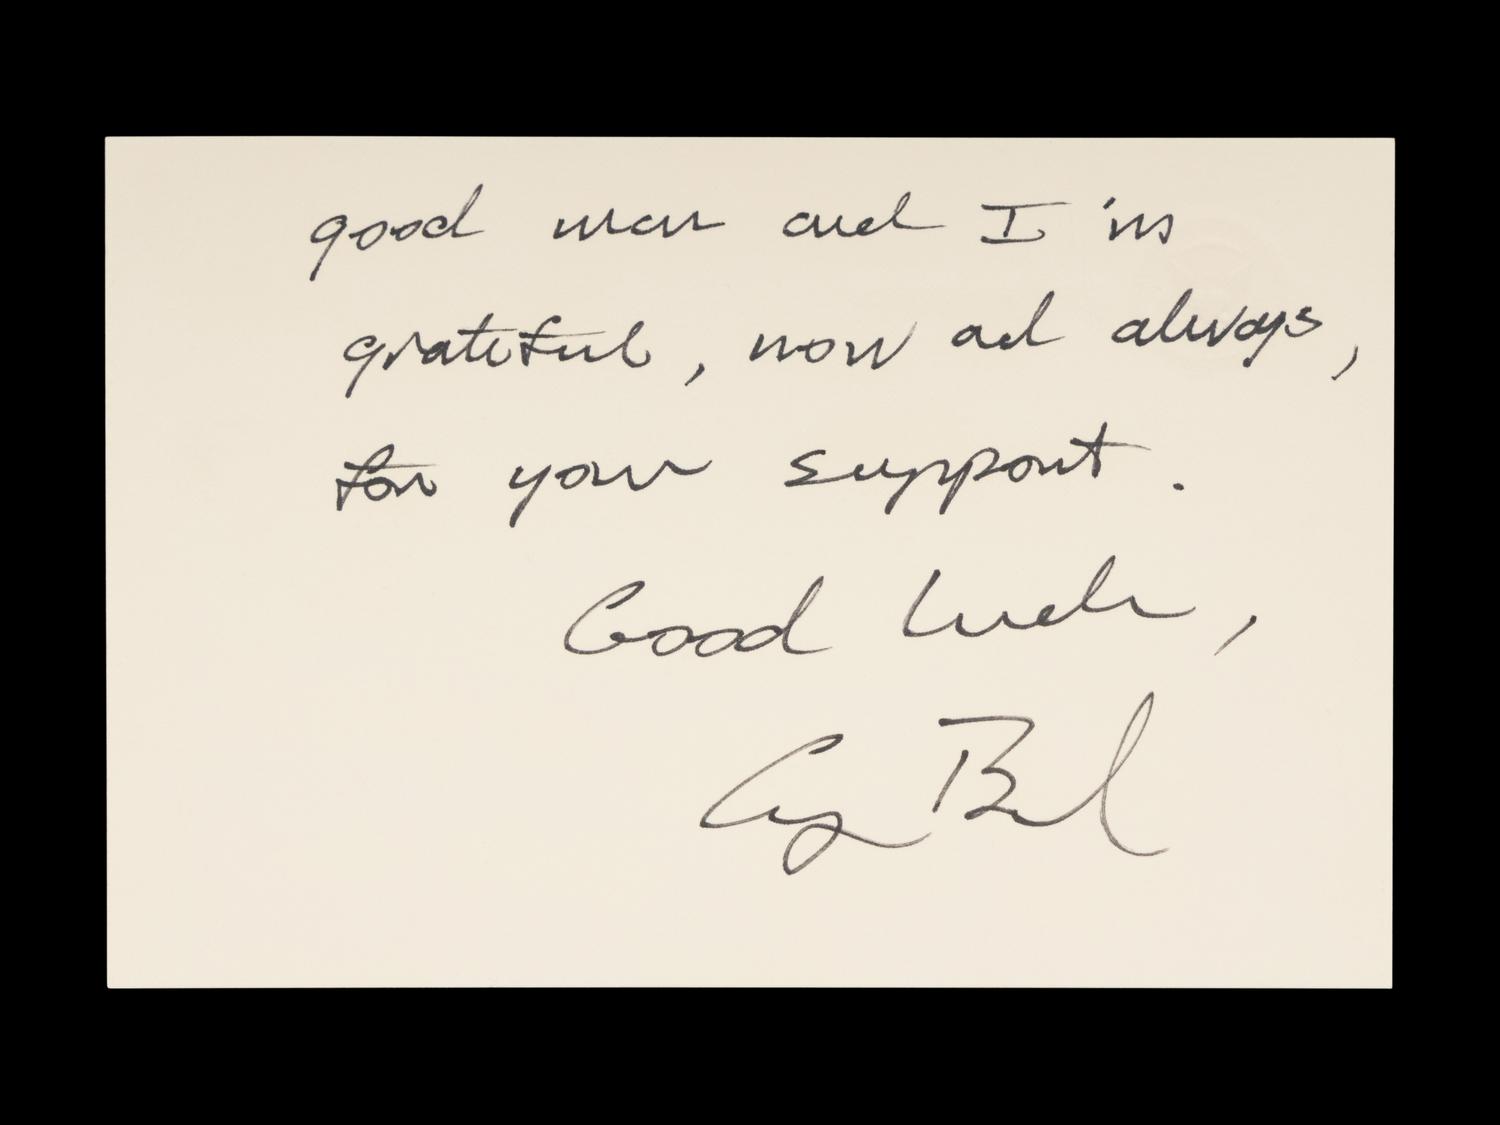 good man and I'm
grateful, now ad always,
for your support.
Good luck,